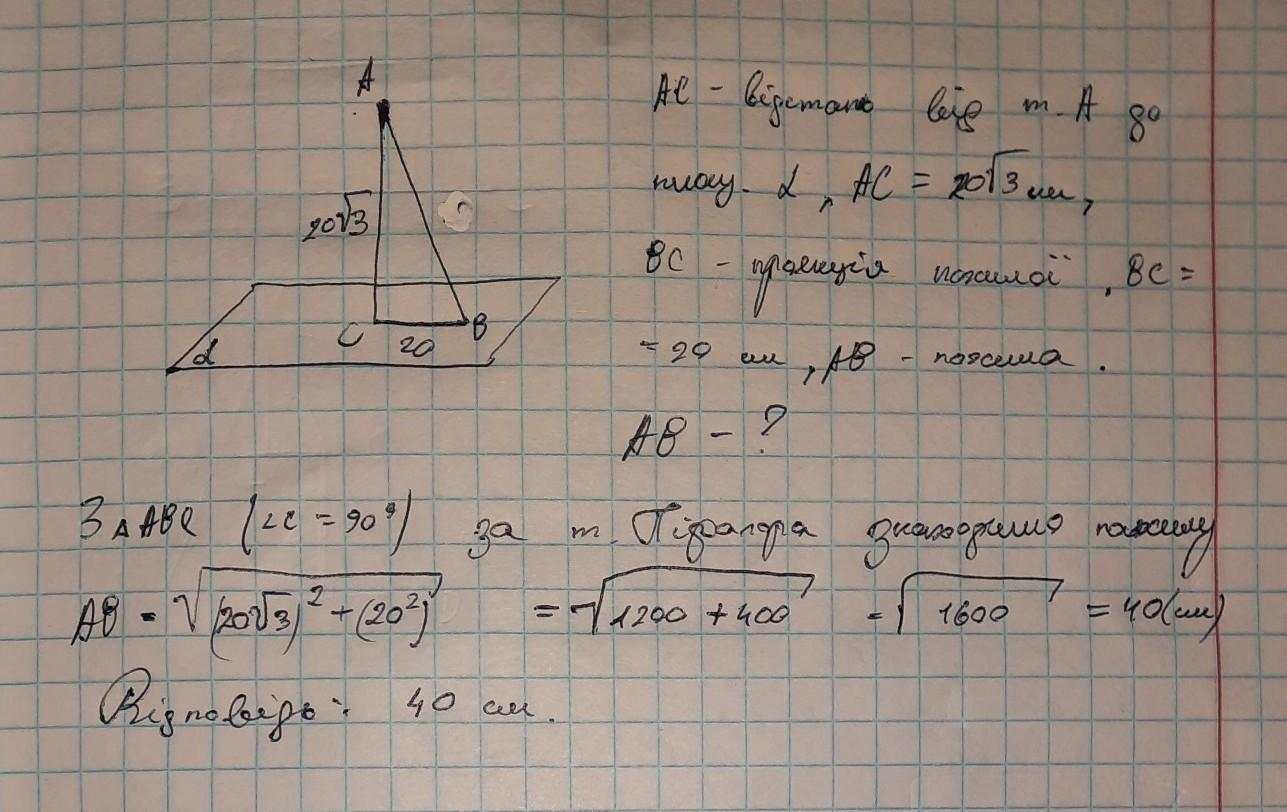 A
20√3
C
20
B
α
AC - відстань від т. A до
площ. α, AC = 20√3 см,
BC - проекція похилої, BC =
= 20 см, AB - похила.
AB - ?
З △ABC (∠C = 90°) за т. Піфагора знаходимо похилу
AB = √((20√3)² + (20²)) = √(1200 + 400) = √1600 = 40(см)
Відповідь: 40 см.